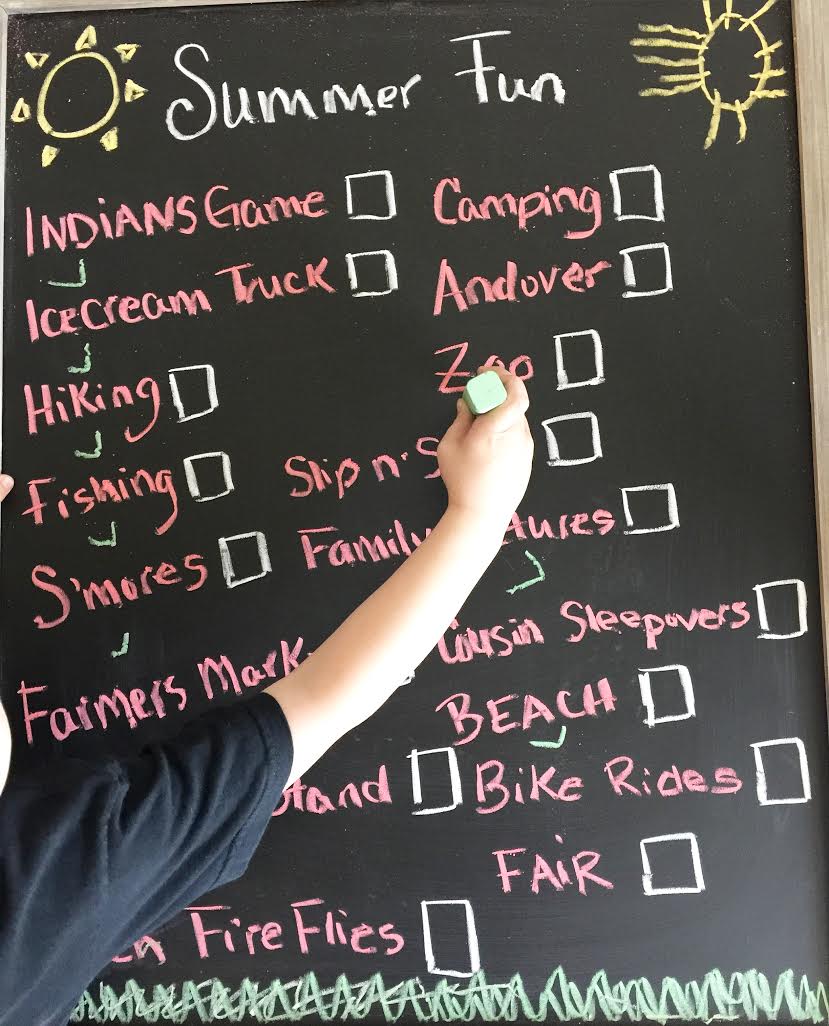 Summer Fun
INDIANS Game
Icecream Truck
Hiking
Fishing
S'mores
Farmers
Stand
Fire Flies
Camping
Andover
Zoo
Slip n'
Family
Cousin Sleepovers
BEACH
Bike Rides
FAIR